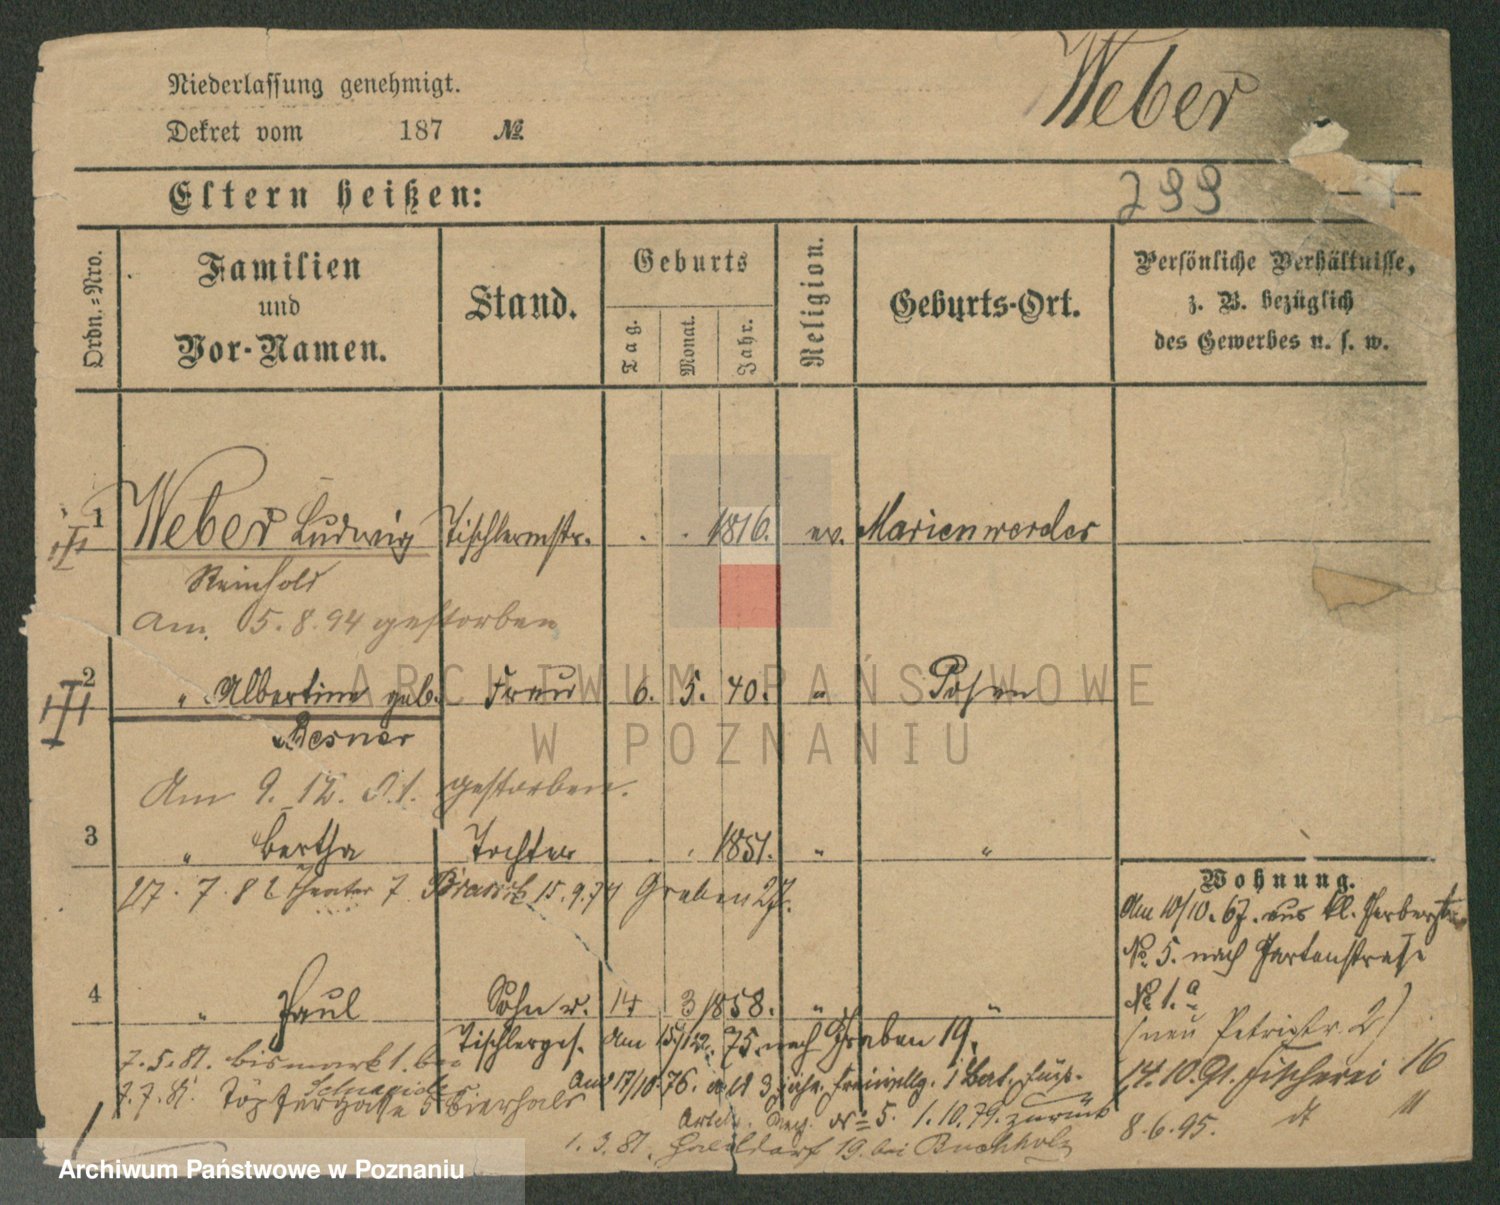 Weber
Niederlassung genehmigt.
Dekret vom 187 №
299
Eltern heißen:
Ordn.-Nro.
Familien
und
Vor-Namen.
Stand.
Geburts
Tag.
Monat.
Jahr.
Religion.
Geburts-Ort.
Persönliche Verhältnisse,
z. B. bezüglich
des Gewerbes u. s. w.
1 Weber Ludwig Tischlermstr. . . 1816. ev. Marienwerder
III
Reinhold
Am 5.8.94 gestorben
2 " Albertine geb. Frau 6. 5. 40. " Posen
III
Besner
Am 9. 12. 01. gestorben.
3 " Bertha Tochter . . 1851. " "
27. 7. 82 Theater 7 15. 9. 74 Graben 27.
4 " Paul Sohn u. 14 3 1858. " "
Tischlerges. Am 15/12. 75. nach Graben 19.
7. 5. 81. Bismarkt 1. bei
Schneider
7. 7. 81 Töpfergasse 5
Am 17/10 76. als 3 jähr. Freiwillg. 1 Bat. Füs.
№ 5. 1.10.79. zurück
1. 3. 81. 19. bei Buchholz
Wohnung.
Am 10/10. 67. aus kl. Gerberstr.
№ 5. nach Gartenstraße
№ 1.a
(neu Petristr. 2)
14. 10. 91. Fischerei 16
8. 6. 95. dt 11
ARCHIWUM PAŃSTWOWE
W POZNANIU
Archiwum Państwowe w Poznaniu